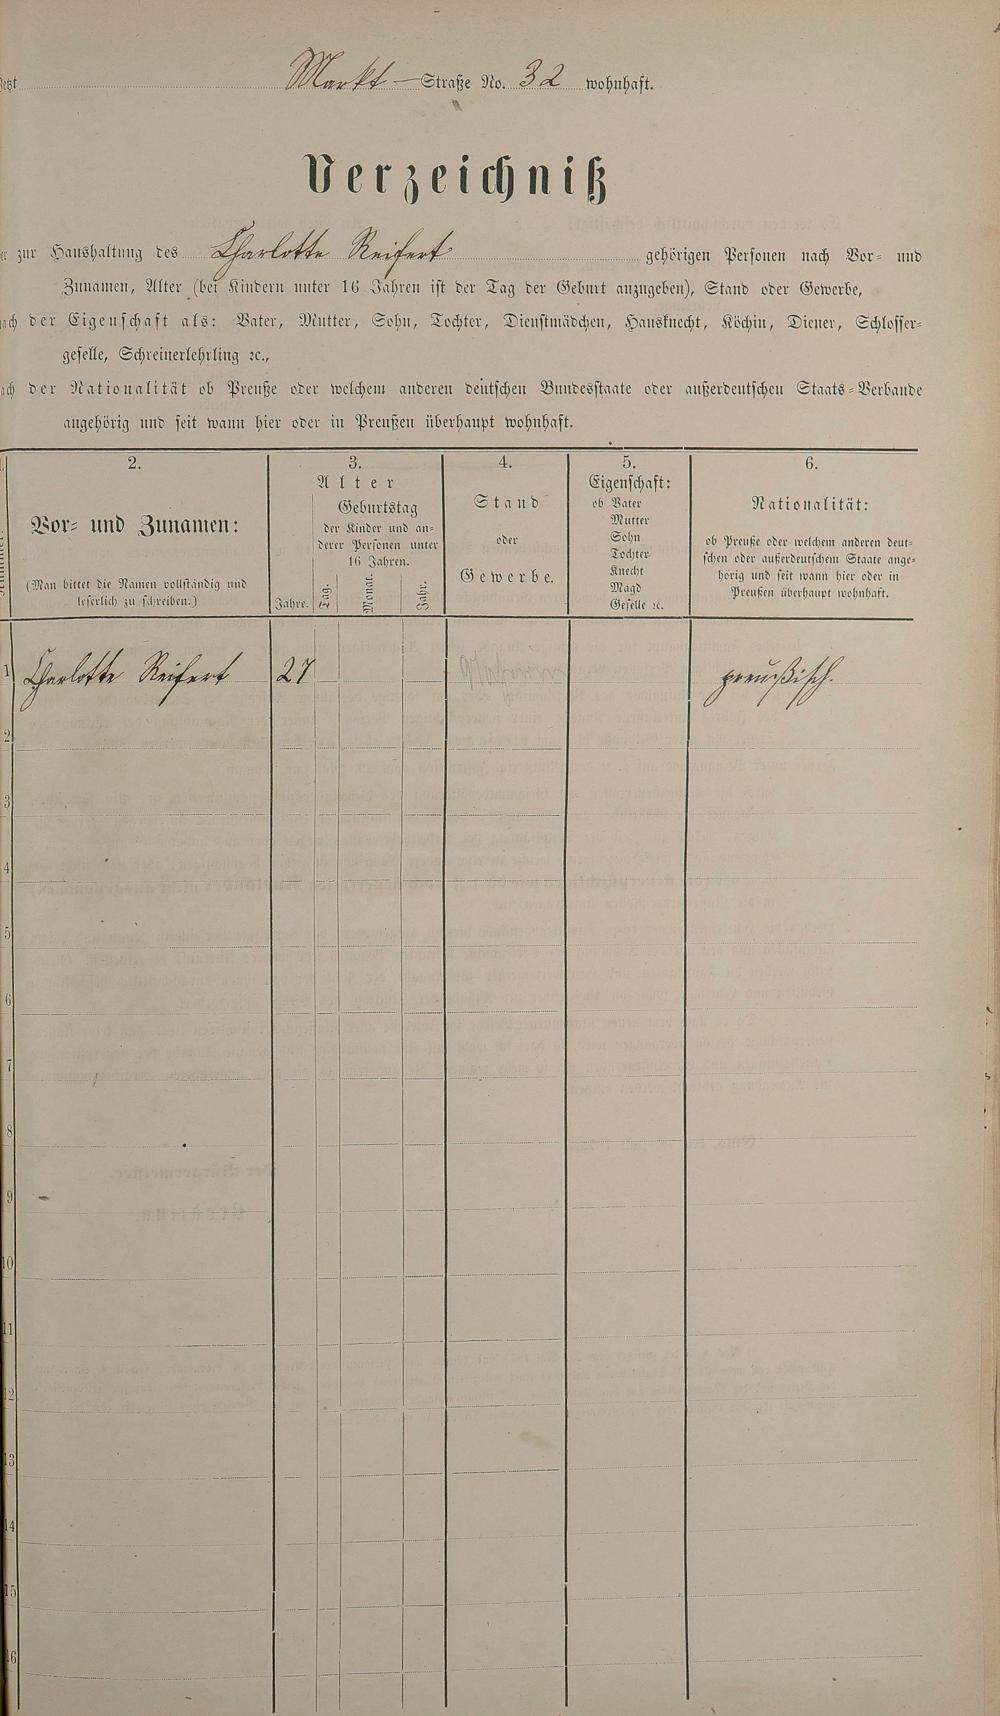 jetzt Markt-Straße No. 32 wohnhaft.
Verzeichniß
der zur Haushaltung des Charlotte Reifert gehörigen Personen nach Vor- und
Zunamen, Alter (bei Kindern unter 16 Jahren ist der Tag der Geburt anzugeben), Stand oder Gewerbe,
nach der Eigenschaft als: Vater, Mutter, Sohn, Tochter, Dienstmädchen, Hausknecht, Köchin, Diener, Schlosser-
geselle, Schreinerlehrling ꝛc.,
nach der Nationalität ob Preuße oder welchem anderen deutschen Bundesstaate oder außerdeutschen Staats-Verbande
angehörig und seit wann hier oder in Preußen überhaupt wohnhaft.
2.
Vor- und Zunamen:
(Man bittet die Namen vollständig und
leserlich zu schreiben.)
3.
Alter
Geburtstag
der Kinder und an-
derer Personen unter
16 Jahren.
Jahre.
Tag.
Monat.
Jahr.
4.
Stand
oder
Gewerbe.
5.
Eigenschaft:
ob Vater
Mutter
Sohn
Tochter
Knecht
Magd
Geselle ꝛc.
6.
Nationalität:
ob Preuße oder welchem anderen deut-
schen oder außerdeutschem Staate ange-
hörig und seit wann hier oder in
Preußen überhaupt wohnhaft.
1 Charlotte Reifert 27 preußisch.
2
3
4
5
6
7
8
9
10
11
12
13
14
15
16